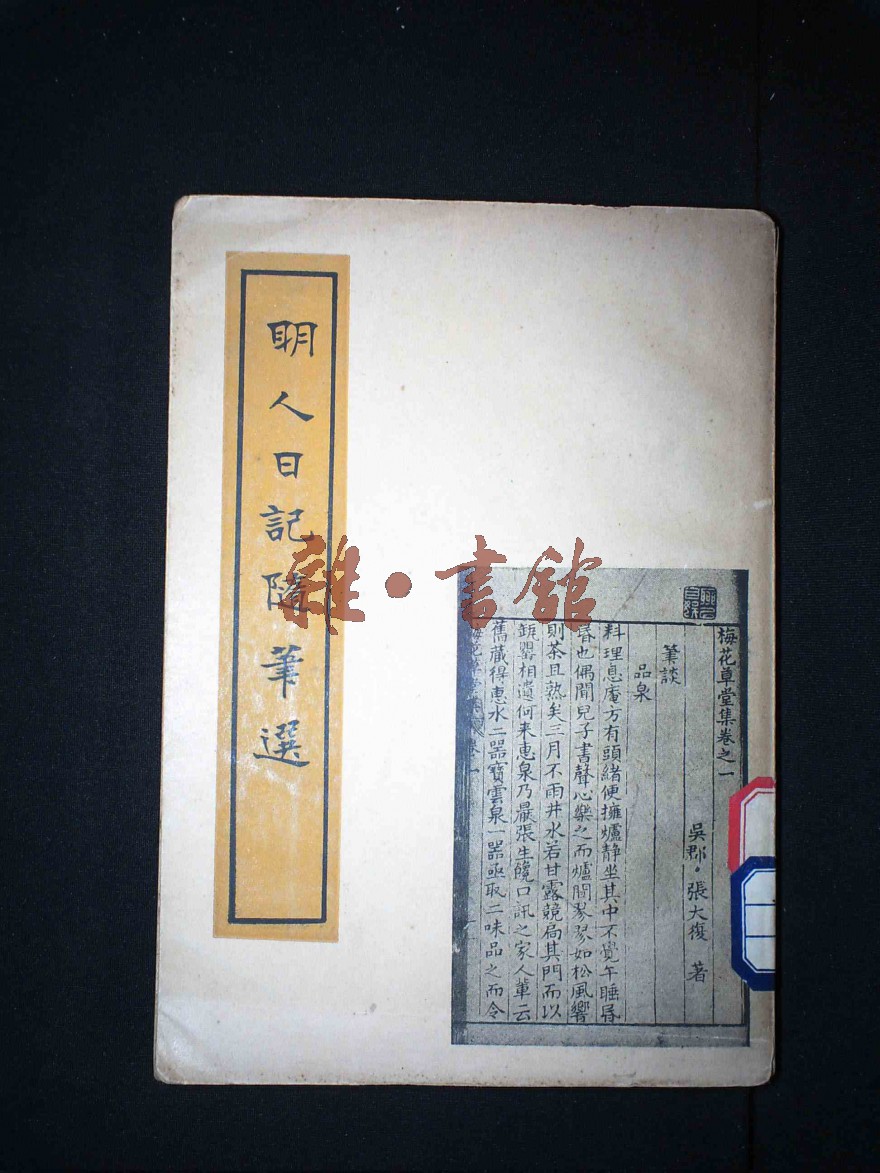 明人日記隨筆選
雜·書館
梅花草堂集卷之一
吳郡·張大復 著
筆談
品泉
料理息庵方有頭緒便擁爐靜坐其中不覺午睡昏
昏也偶聞兒子書聲心樂之而爐間琴琴如松風響
則茶且熟矣三月不雨井水若甘露競扃其門而以
缾罌相遺何来惠泉乃厭張生饞口訊之家人輩云
舊藏得惠水二器寶雲泉一器亟取二味品之而令